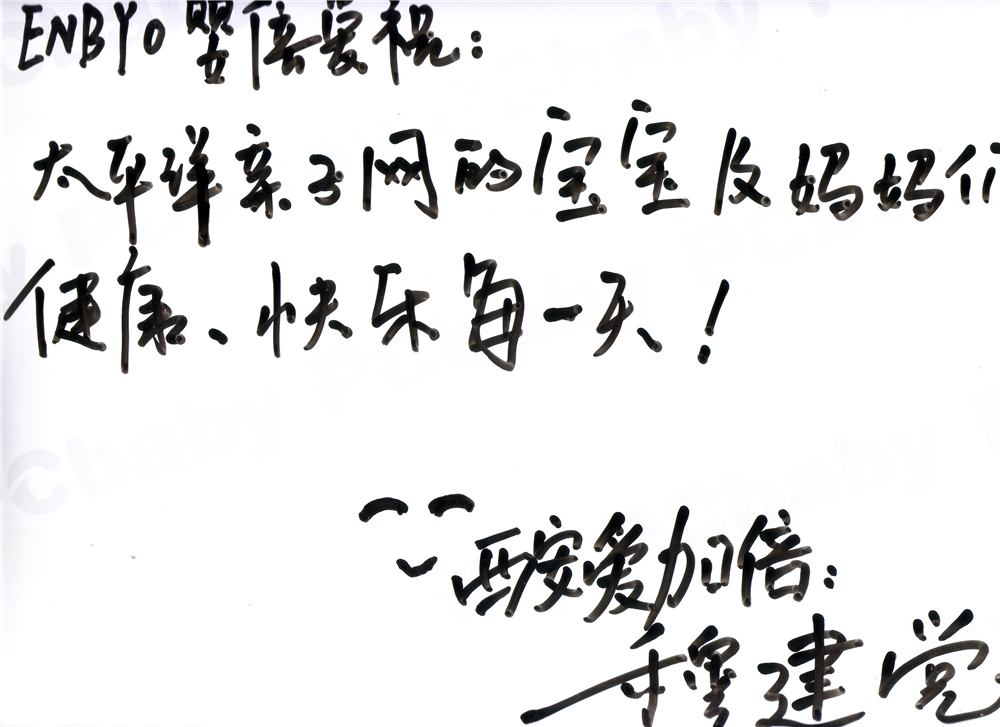 ENBYO婴倍爱祝:
太平洋亲子网的宝宝及妈妈们
健康、快乐每一天!
西安爱加倍:
穆建党
Cbaby